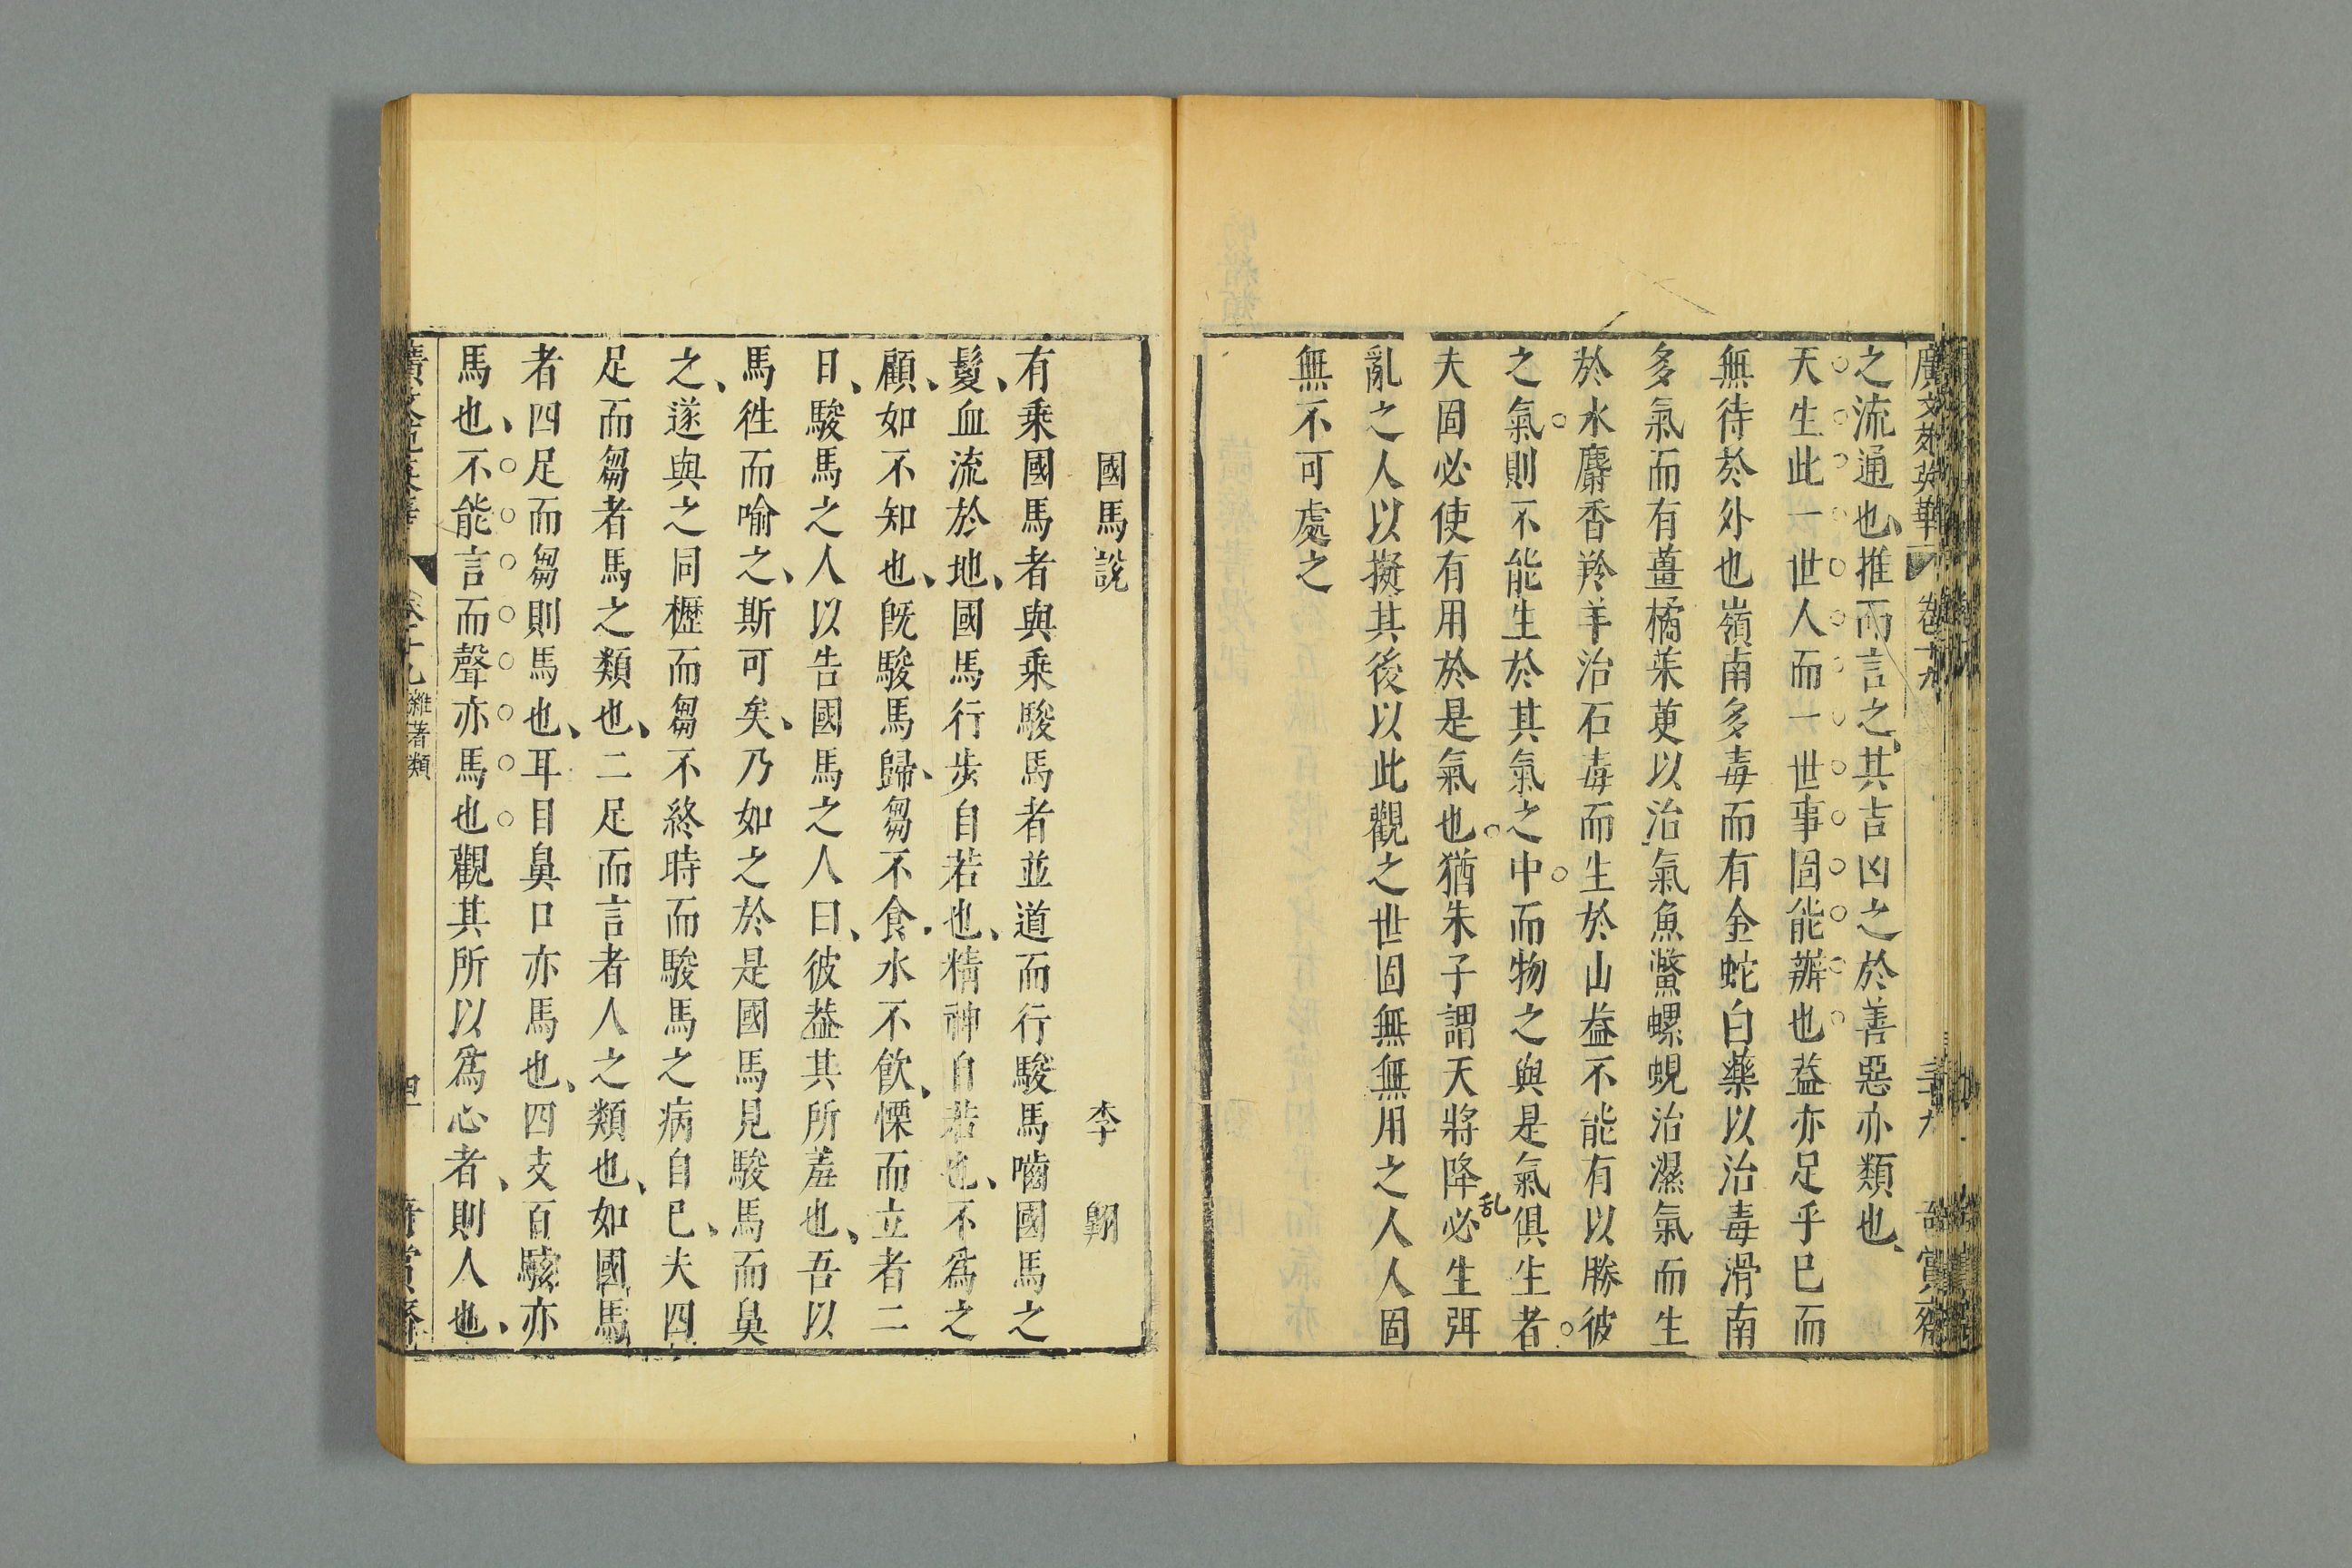 廣文苑英華 卷十九 三十九 奇賞齋
之流通也推而言之其吉凶之於善惡亦類也
天生此一世人而一世事固能辦也葢亦足乎已而
無待於外也嶺南多毒而有金蛇白藥以治毒滑南
多氣而有薑橘茱萸以治氣魚鱉螺蜆治濕氣而生
於水麝香羚羊治石毒而生於山葢不能有以勝彼
之氣則不能生於其氣之中而物之與是氣俱生者
夫固必使有用於是氣也猶朱子謂天將降必生弭
乱
亂之人以擬其後以此觀之世固無無用之人人固
無不可處之
國馬說 李翺
有乘國馬者與乘駿馬者並道而行駿馬嚙國馬之
鬉血流於地國馬行步自若也精神自若也不為之
顧如不知也既駿馬歸芻不食水不飲慄而立者二
日駿馬之人以告國馬之人曰彼葢其所羞也吾以
馬徃而喻之斯可矣乃如之於是國馬見駿馬而鼻
之遂與之同櫪而芻不終時而駿馬之病自已夫四
足而芻者馬之類也二足而言者人之類也如國馬
者四足而芻則馬也耳目鼻口亦馬也四支百骸亦
馬也不能言而聲亦馬也觀其所以爲心者則人也
廣文苑英華 卷十九 雜著類 四十 奇賞齋